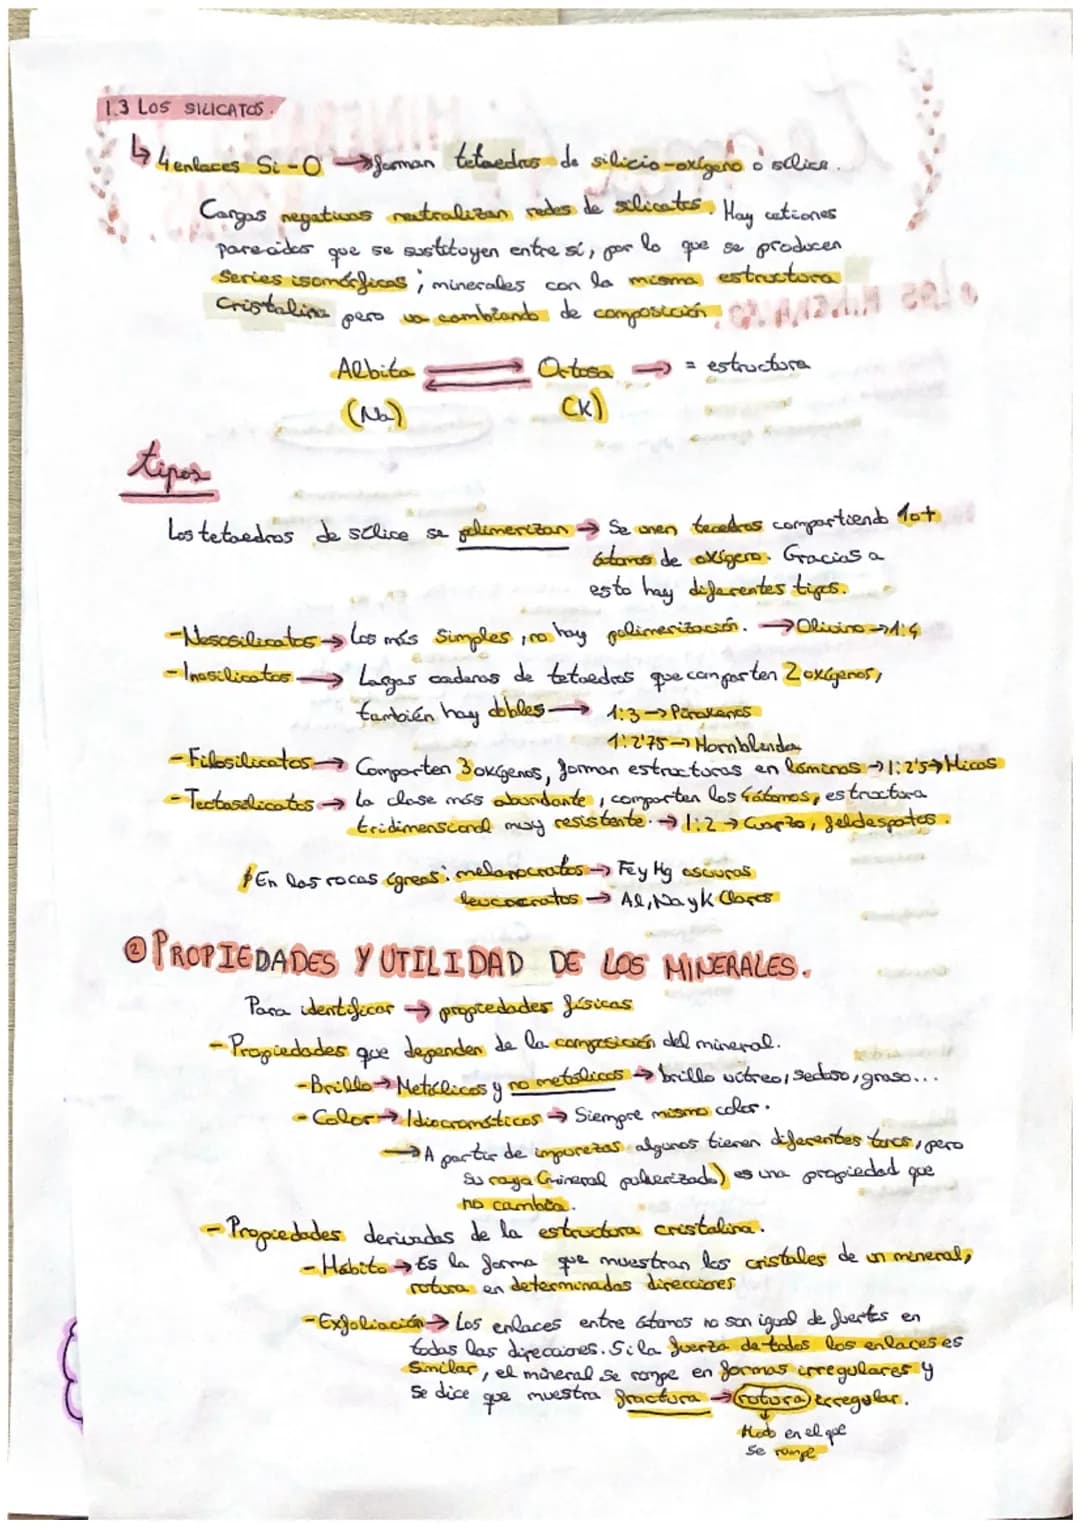 1.3 LOS SILICATOS.
↳ 4 enlaces Si-O → forman tetaedros de silicio-oxígeno o sílice.
Cargas negativas neutralizan redes de silicatos. Hay cationes
parecidos que se sustituyen entre sí, por lo que se producen
Series isomórficas; minerales con la misma estructura
Cristalina pero va cambiando de composición.
Albita ⇄ Ortosa → = estructura
(Na) (K)
tipos
Los tetaedros de sílice se polimerizan → Se unen teaedros compartiendo 1o+
átomos de oxígeno. Gracias a
esto hay diferentes tipos.
-Nesosilicatos → Los más simples, no hay polimerización. → Olivino → 1:4
-Inosilicatos → Largas cadenas de tetaedros que comparten 2 oxígenos,
también hay dobles → 1:3 → Piroxenos
1:2'75 → Hornblenda
-Filosilicatos → Comparten 3 oxígenos, forman estructuras en láminas → 1:2'5 → Micas
-Tectosilicatos → La clase más abundante, comparten los 4 átomos, estructura
tridimensional muy resistente. → 1:2 → Cuarzo, feldespatos.
En las rocas ígneas: melanocratos → Fe y Mg oscuras
leucocratos → Al, Na y K Claros
② PROPIEDADES Y UTILIDAD DE LOS MINERALES.
Para identificar → propiedades físicas
- Propiedades que dependen de la composición del mineral.
-Brillo → Metálicos y no metálicos → brillo vítreo, sedoso, graso...
- Color → Idiocromáticos → Siempre mismo color.
→ A partir de impurezas algunos tienen diferentes tonos, pero
su raya (mineral pulverizado) es una propiedad que
no cambia.
- Propiedades derivadas de la estructura cristalina.
- Hábito → Es la forma que muestran los cristales de un mineral,
rotura en determinadas direcciones
-Exfoliación → Los enlaces entre átomos no son igual de fuertes en
todas las direcciones. Si la fuerza de todos los enlaces es
similar, el mineral se rompe en formas irregulares y
Se dice que muestra fractura → (rotura) irregular.
↓
Modo en el que
se rompe